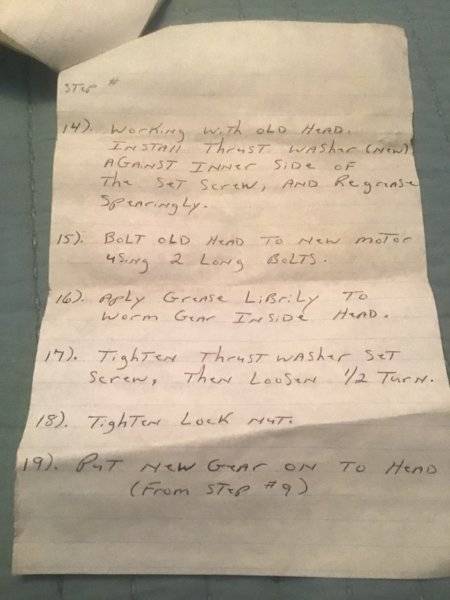 STEP #
14). Working with oLD HeAD.
INSTAll Thrust WASher (New)
AGAINST INNer SiDe of
The SeT Screw, AND Regrease
SpearingLy.
15). BoLT oLD HeAD To New moTor
using 2 Long BoLTS.
16). Aply Grense LiBriLy To
worm Gear InSiDe HeAD.
17). TighTen ThrusT wasHer SeT
Screw, Then LooSen 1/2 Turn.
18). TighTen Lock NuT.
19). PuT New Gear oN To HeAD
(From STep #9)